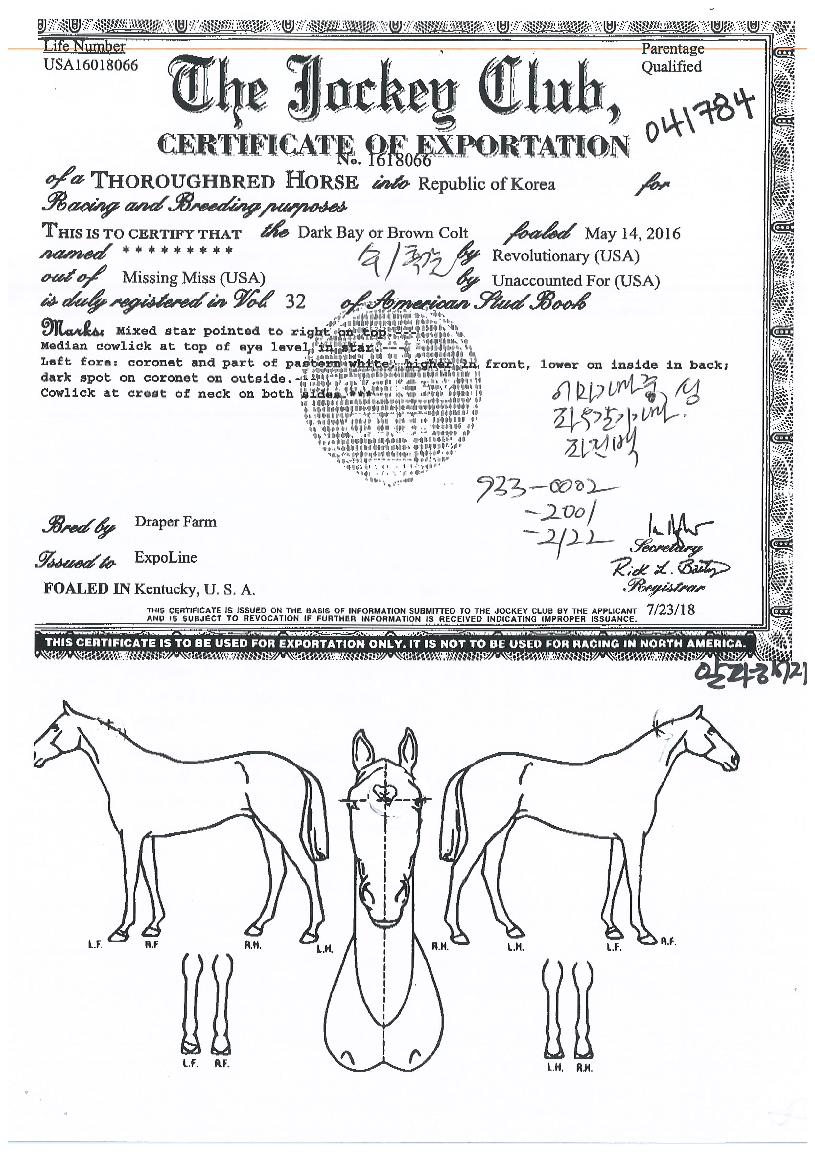 Life Number
USA16018066
Parentage
Qualified
The Jockey Club,
041784
CERTIFICATE OF EXPORTATION
No. 1618066
of a THOROUGHBRED HORSE into Republic of Korea for
Racing and Breeding purposes
THIS IS TO CERTIFY THAT the Dark Bay or Brown Colt foaled May 14, 2016
named * * * * * * * * * by Revolutionary (USA)
out of Missing Miss (USA) by Unaccounted For (USA)
is duly registered in Vol. 32 of American Stud Book
Marks: Mixed star pointed to right on top.---
Median cowlick at top of eye level in star.---
Left fore: coronet and part of pastern white, higher in front, lower on inside in back;
dark spot on coronet on outside.---
Cowlick at crest of neck on both sides.***
933-0002
-2001
-2122
Bred by Draper Farm
Secretary
Issued to ExpoLine
Registrar
FOALED IN Kentucky, U. S. A.
THIS CERTIFICATE IS ISSUED ON THE BASIS OF INFORMATION SUBMITTED TO THE JOCKEY CLUB BY THE APPLICANT 7/23/18
AND IS SUBJECT TO REVOCATION IF FURTHER INFORMATION IS RECEIVED INDICATING IMPROPER ISSUANCE.
THIS CERTIFICATE IS TO BE USED FOR EXPORTATION ONLY. IT IS NOT TO BE USED FOR RACING IN NORTH AMERICA.
L.F. R.F R.H. L.H. R.H. L.H. L.F. R.F.
L.F. R.F. L.H. R.H.